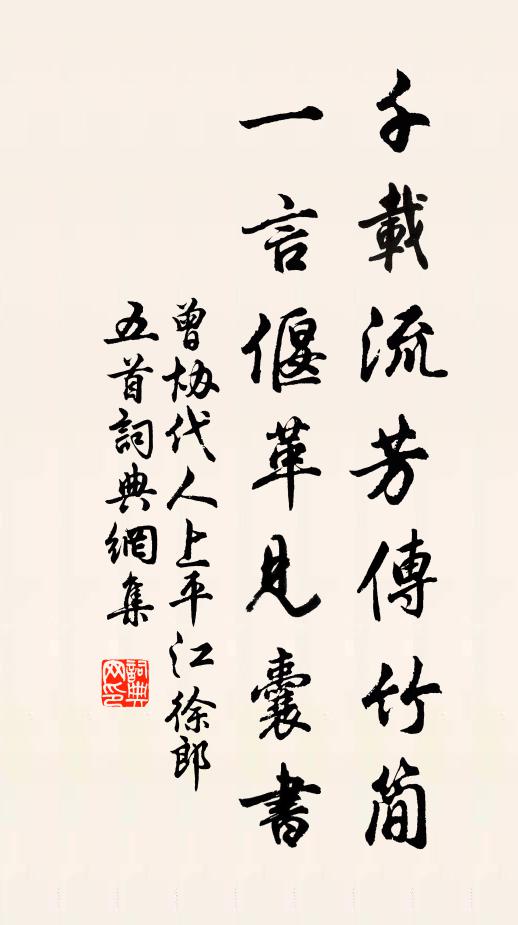 千載流芳傳竹簡
一言偃革見囊書
曾協代人上平江徐郎
五首詞典網集
詞典网印